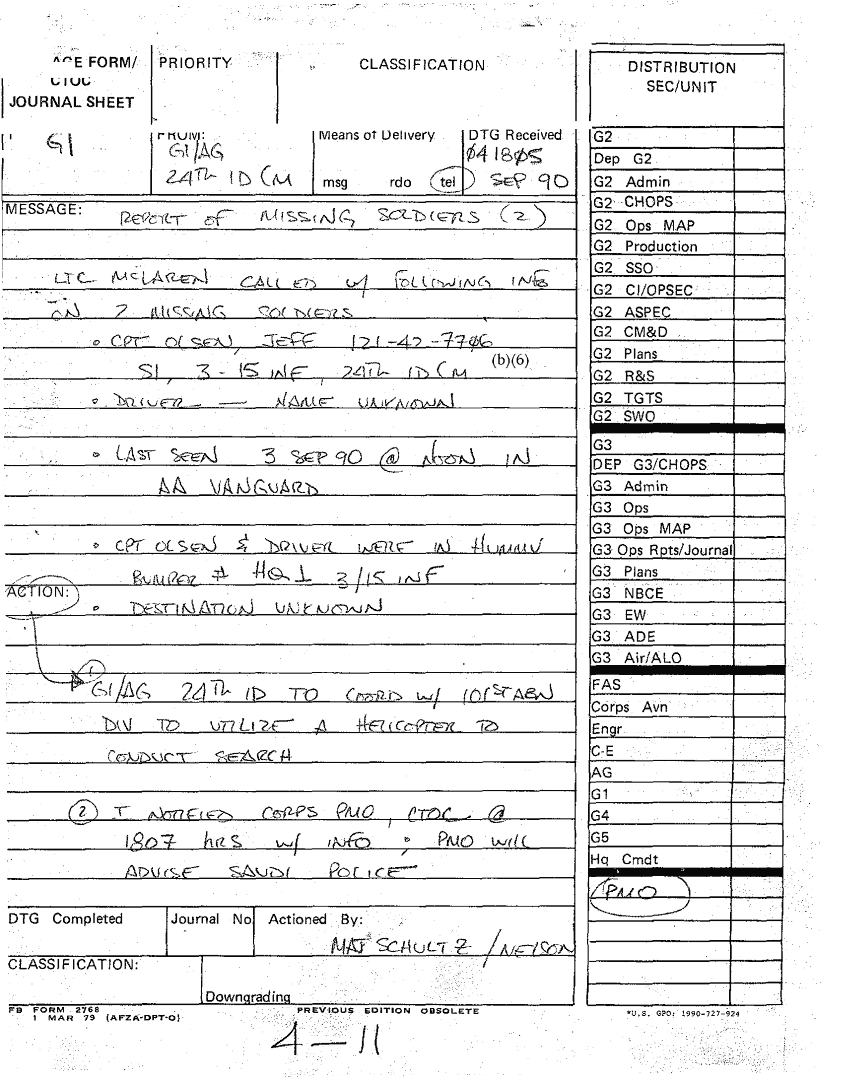 ACE FORM/
CTOC
JOURNAL SHEET
PRIORITY
CLASSIFICATION
DISTRIBUTION
SEC/UNIT
G1
FROM:
G1/AG
24TH ID (M
Means of Delivery
msg rdo tel
DTG Received
041805
SEP 90
MESSAGE:
REPORT OF MISSING SOLDIERS (2)
LTC MCLAREN CALLED W/ FOLLOWING INFO
ON 2 MISSING SOLDIERS
• CPT OLSEN, JEFF 121-42-7706
(b)(6)
S1, 3-15 INF, 24TH ID (M
• DRIVER — NAME UNKNOWN
• LAST SEEN 3 SEP 90 @ NOON IN
AA VANGUARD
• CPT OLSEN & DRIVER WERE IN HUMMV
BUMPER # HQ 1 3/15 INF
ACTION:
• DESTINATION UNKNOWN
① G1/AG 24TH ID TO COORD W/ 101ST ABN
DIV TO UTILIZE A HELICOPTER TO
CONDUCT SEARCH
② I NOTIFIED CORPS PMO, CTOC @
1807 hrs W/ INFO ; PMO WILL
ADVISE SAUDI POLICE
DTG Completed
Journal No
Actioned By:
MAJ SCHULTZ / NELSON
CLASSIFICATION:
Downgrading
FB FORM 2768
1 MAR 79 (AFZA-DPT-O)
PREVIOUS EDITION OBSOLETE
4-11
G2
Dep G2
G2 Admin
G2 CHOPS
G2 Ops MAP
G2 Production
G2 SSO
G2 CI/OPSEC
G2 ASPEC
G2 CM&D
G2 Plans
G2 R&S
G2 TGTS
G2 SWO
G3
DEP G3/CHOPS
G3 Admin
G3 Ops
G3 Ops MAP
G3 Ops Rpts/Journal
G3 Plans
G3 NBCE
G3 EW
G3 ADE
G3 Air/ALO
FAS
Corps Avn
Engr
C-E
AG
G1
G4
G5
Hq Cmdt
PMO
*U.S. GPO: 1990-727-924